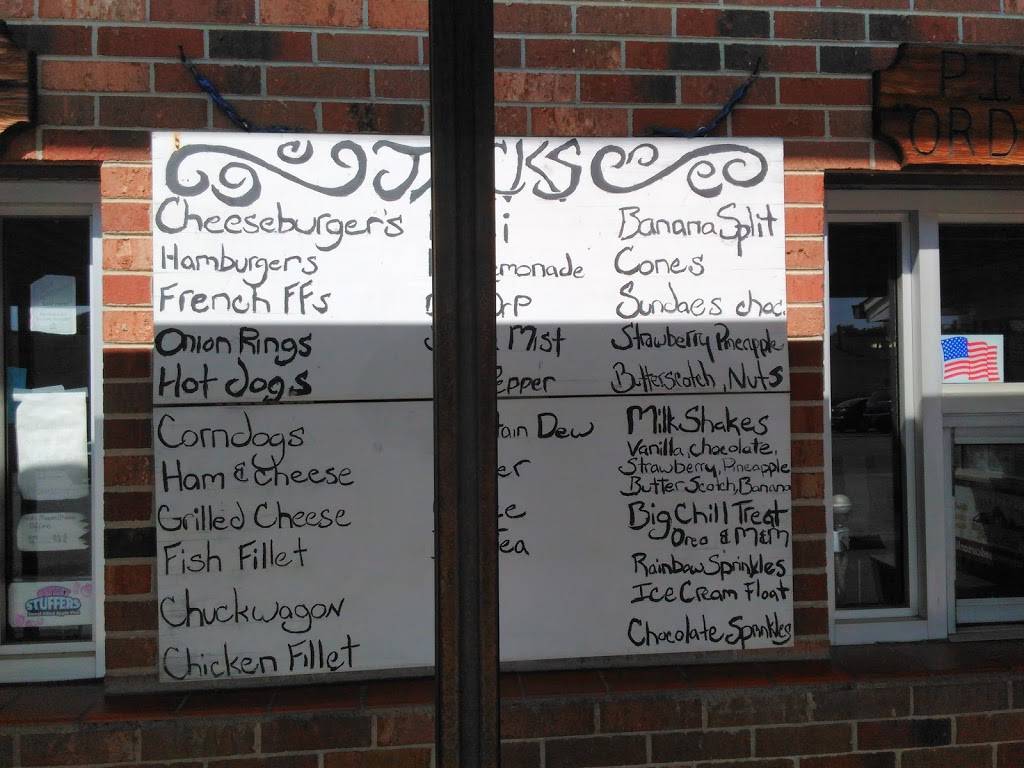 Cheeseburger's
Hamburgers
French FFs
Onion Rings
Hot dogs
Corndogs
Ham & Cheese
Grilled Cheese
Fish Fillet
Chuckwagon
Chicken Fillet
Mist
Dew
Banana Split
Cones
Sundaes choc.
Strawberry Pineapple
Butterscotch, Nuts
MilkShakes
Vanilla, chocolate,
Strawberry, Pineapple
Butter Scotch, Banana
Big Chill Treat
Oreo & M&M
Rainbow Sprinkles
Ice Cream Float
Chocolate Sprinkles
STUFFERS